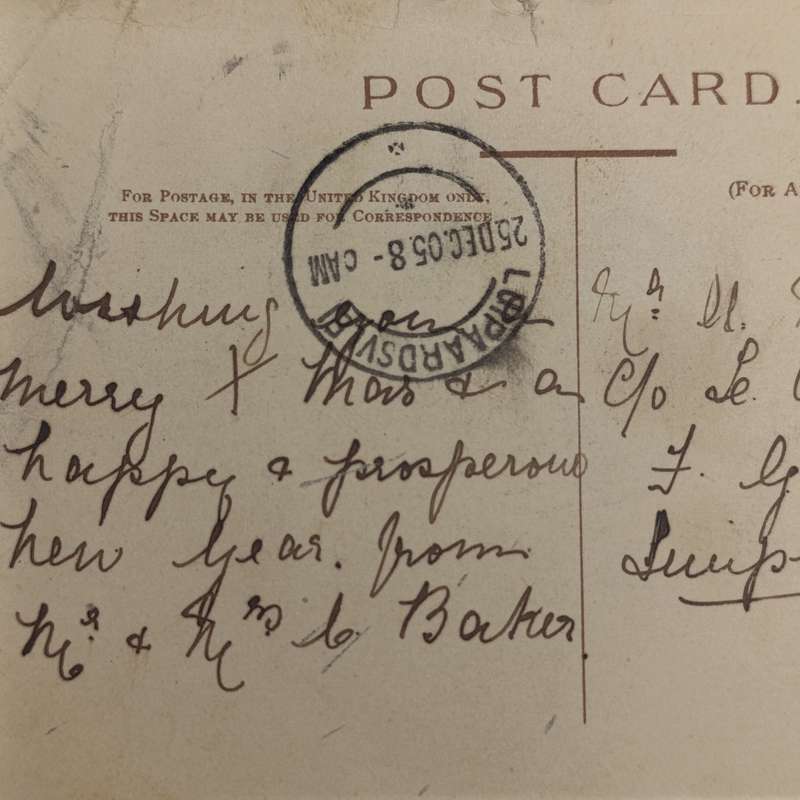 POST CARD.
FOR POSTAGE, IN THE UNITED KINGDOM ONLY,
THIS SPACE MAY BE USED FOR CORRESPONDENCE
(FOR A
25 DEC. 05 8 - AM
Wishing you a
merry Xmas & a
happy & prosperous
New Year. from
Mr & Mrs C. Baker
Mr
C/o
F. G